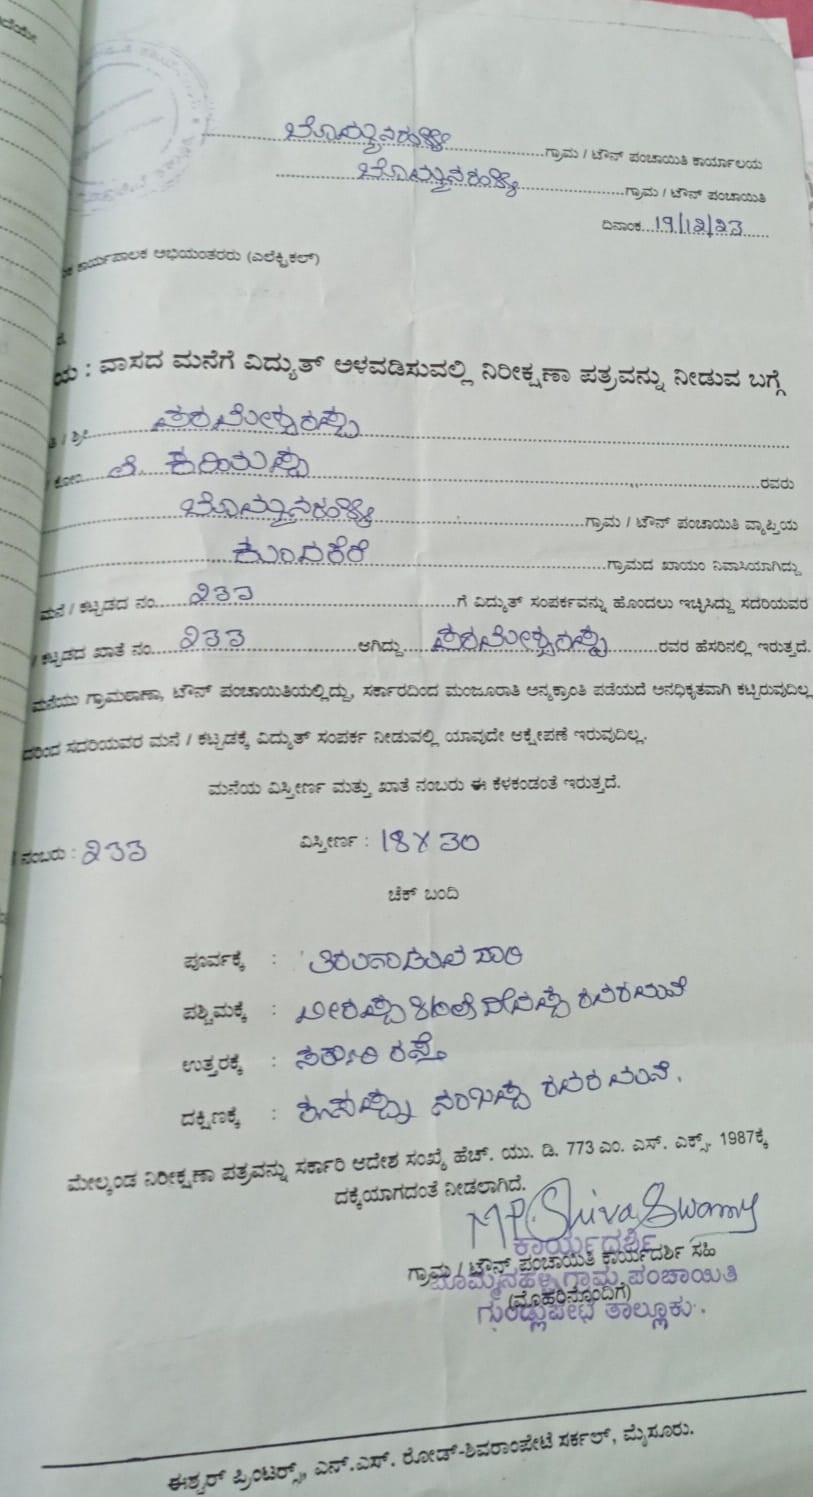 ಬೊಮ್ಮನಹಳ್ಳಿ ಗ್ರಾಮ / ಟೌನ್ ಪಂಚಾಯಿತಿ ಕಾರ್ಯಾಲಯ
ಬೊಮ್ಮನಹಳ್ಳಿ ಗ್ರಾಮ / ಟೌನ್ ಪಂಚಾಯಿತಿ
ದಿನಾಂಕ 19/12/23
ಕಾರ್ಯಪಾಲಕ ಅಭಿಯಂತರರು (ಎಲೆಕ್ಟ್ರಿಕಲ್)
ಯ : ವಾಸದ ಮನೆಗೆ ವಿದ್ಯುತ್ ಅಳವಡಿಸುವಲ್ಲಿ ನಿರೀಕ್ಷಣಾ ಪತ್ರವನ್ನು ನೀಡುವ ಬಗ್ಗೆ
ತಿ / ಶ್ರೀ ಪರಮೇಶ್ವರಪ್ಪ
ಕೋಂ ರವರು
ಬೊಮ್ಮನಹಳ್ಳಿ ಗ್ರಾಮ / ಟೌನ್ ಪಂಚಾಯಿತಿ ವ್ಯಾಪ್ತಿಯ
ಕುಂದಕೆರೆ ಗ್ರಾಮದ ಖಾಯಂ ನಿವಾಸಿಯಾಗಿದ್ದು
ಮನೆ / ಕಟ್ಟಡದ ನಂ. 233 ಗೆ ವಿದ್ಯುತ್ ಸಂಪರ್ಕವನ್ನು ಹೊಂದಲು ಇಚ್ಛಿಸಿದ್ದು ಸದರಿಯವರ
/ ಕಟ್ಟಡದ ಖಾತೆ ನಂ. 233 ಆಗಿದ್ದು ಪರಮೇಶ್ವರಪ್ಪ ರವರ ಹೆಸರಿನಲ್ಲಿ ಇರುತ್ತದೆ.
ಮನೆಯು ಗ್ರಾಮಠಾಣಾ, ಟೌನ್ ಪಂಚಾಯಿತಿಯಲ್ಲಿದ್ದು, ಸರ್ಕಾರದಿಂದ ಮಂಜೂರಾತಿ ಅನ್ಯಕ್ರಾಂತಿ ಪಡೆಯದೆ ಅನಧಿಕೃತವಾಗಿ ಕಟ್ಟಿರುವುದಿಲ್ಲ
ದರಿಂದ ಸದರಿಯವರ ಮನೆ / ಕಟ್ಟಡಕ್ಕೆ ವಿದ್ಯುತ್ ಸಂಪರ್ಕ ನೀಡುವಲ್ಲಿ ಯಾವುದೇ ಆಕ್ಷೇಪಣೆ ಇರುವುದಿಲ್ಲ.
ಮನೆಯ ವಿಸ್ತೀರ್ಣ ಮತ್ತು ಖಾತೆ ನಂಬರು ಈ ಕೆಳಕಂಡಂತೆ ಇರುತ್ತದೆ.
ನಂಬರು : 233 ವಿಸ್ತೀರ್ಣ : 18 X 30
ಚೆಕ್ ಬಂದಿ
ಪೂರ್ವಕ್ಕೆ :
ಪಶ್ಚಿಮಕ್ಕೆ :
ಉತ್ತರಕ್ಕೆ : ಸರ್ಕಾರಿ ರಸ್ತೆ
ದಕ್ಷಿಣಕ್ಕೆ :
ಮೇಲ್ಕಂಡ ನಿರೀಕ್ಷಣಾ ಪತ್ರವನ್ನು ಸರ್ಕಾರಿ ಆದೇಶ ಸಂಖ್ಯೆ ಹೆಚ್. ಯು. ಡಿ. 773 ಎಂ. ಎಸ್. ಎಕ್ಸ್. 1987ಕ್ಕೆ
ದಕ್ಕೆಯಾಗದಂತೆ ನೀಡಲಾಗಿದೆ.
M.P. Shiva Swamy
ಕಾರ್ಯದರ್ಶಿ
ಗ್ರಾಮ / ಟೌನ್ ಪಂಚಾಯಿತಿ ಕಾರ್ಯದರ್ಶಿ ಸಹಿ
ಬೊಮ್ಮನಹಳ್ಳಿ ಗ್ರಾಮ ಪಂಚಾಯಿತಿ
(ಮೊಹರಿನೊಂದಿಗೆ)
ಗುಂಡ್ಲುಪೇಟೆ ತಾಲ್ಲೂಕು.
ಈಶ್ವರ್ ಪ್ರಿಂಟರ್ಸ್, ಎನ್.ಎಸ್. ರೋಡ್-ಶಿವರಾಂಪೇಟೆ ಸರ್ಕಲ್, ಮೈಸೂರು.